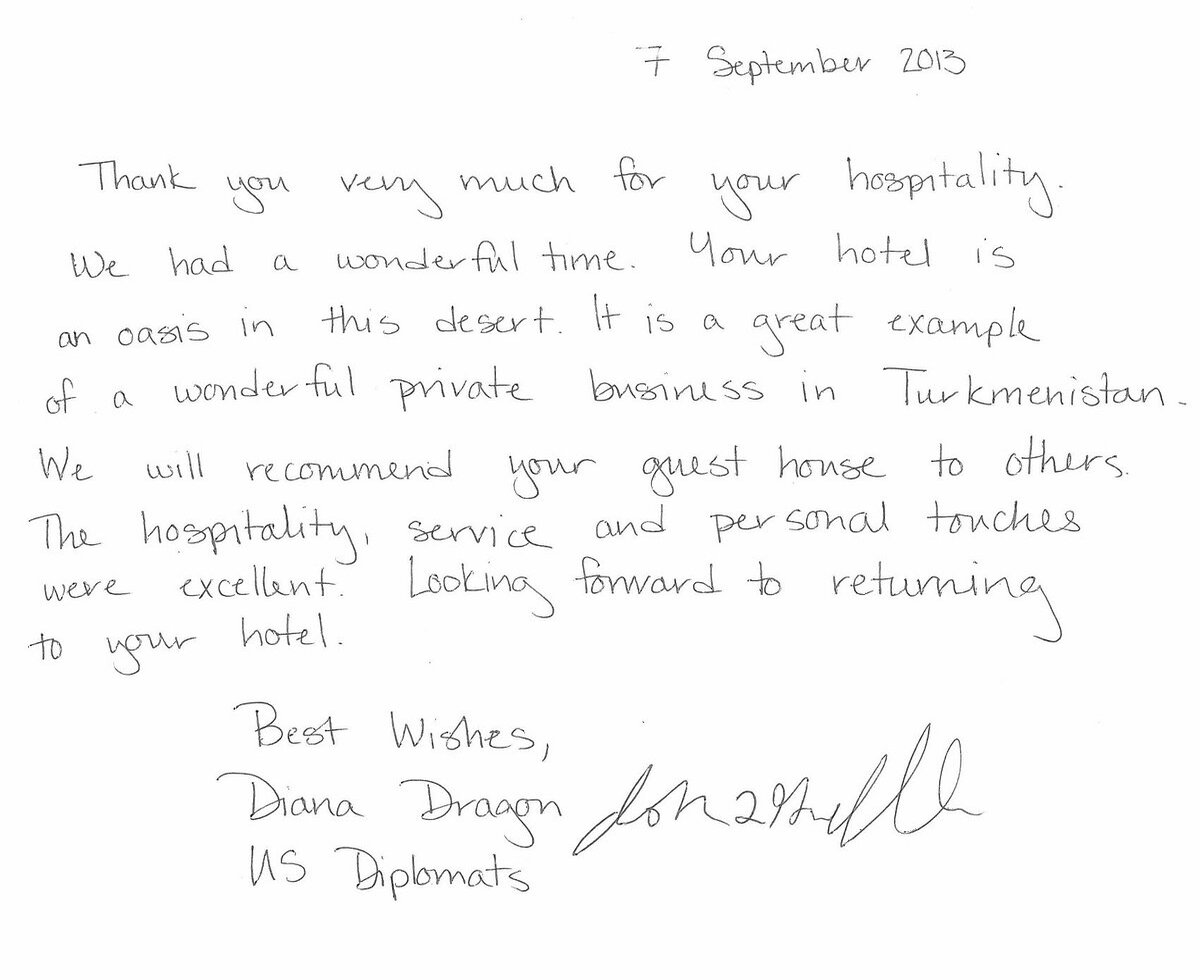 7 September 2013
Thank you very much for your hospitality.
We had a wonderful time. Your hotel is
an oasis in this desert. It is a great example
of a wonderful private business in Turkmenistan.
We will recommend your guest house to others.
The hospitality, service and personal touches
were excellent. Looking forward to returning
to your hotel.
Best Wishes,
Diana Dragon
US Diplomats